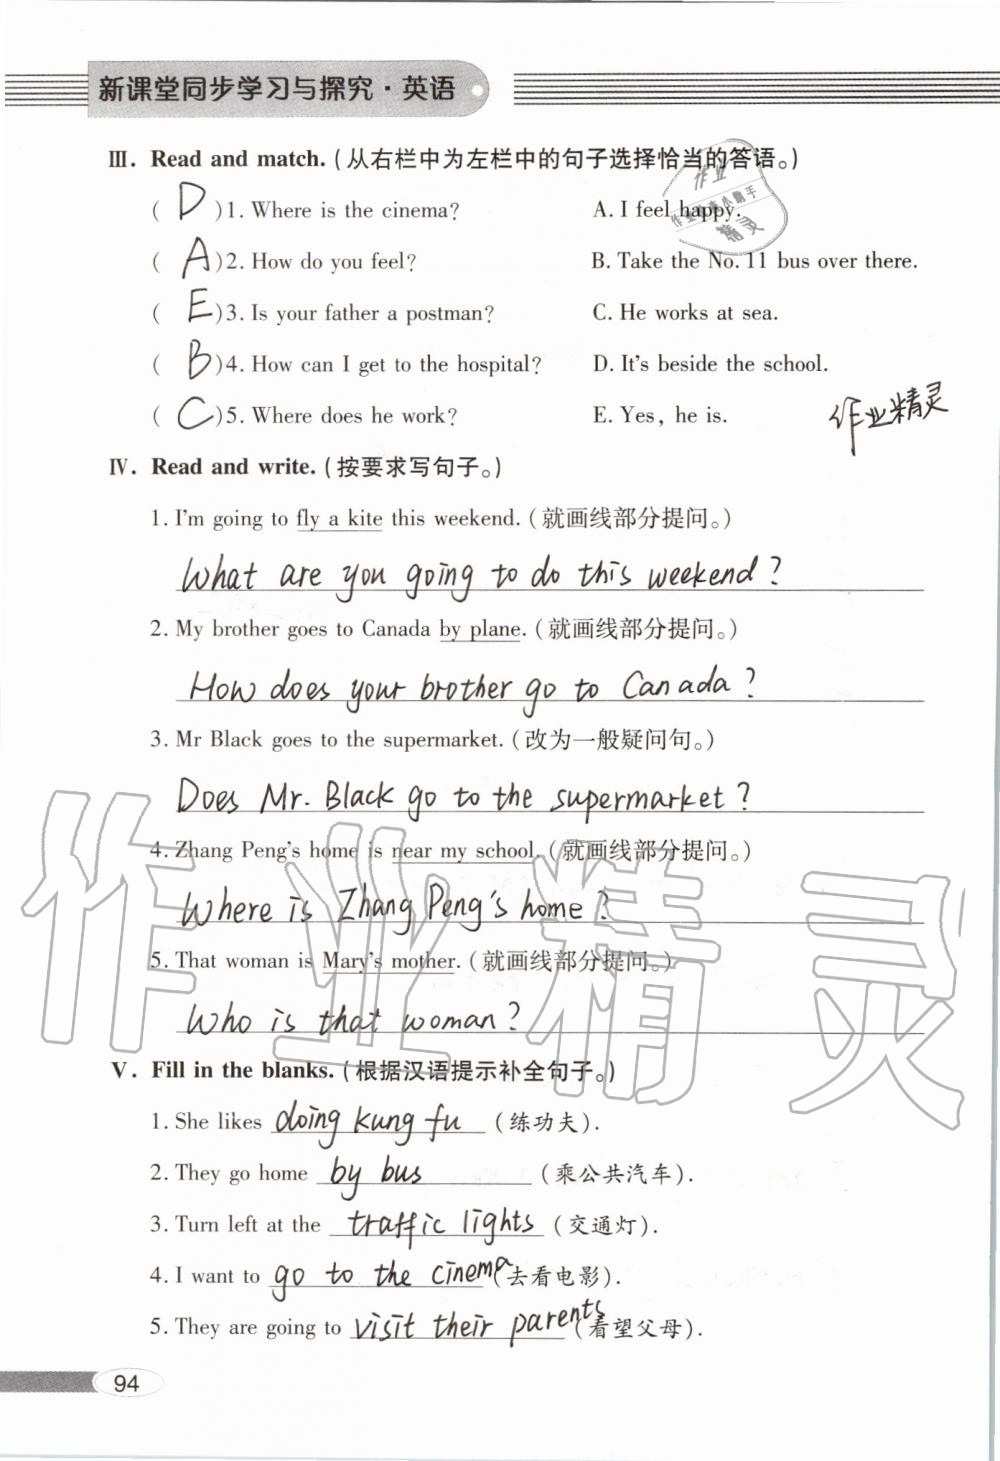 新课堂同步学习与探究·英语
Ⅲ. Read and match. (从右栏中为左栏中的句子选择恰当的答语。)
( D )1. Where is the cinema? A. I feel happy.
( A )2. How do you feel? B. Take the No. 11 bus over there.
( E )3. Is your father a postman? C. He works at sea.
( B )4. How can I get to the hospital? D. It's beside the school.
( C )5. Where does he work? E. Yes, he is.
作业精灵
Ⅳ. Read and write. (按要求写句子。)
1. I'm going to fly a kite this weekend. (就画线部分提问。)
What are you going to do this weekend?
2. My brother goes to Canada by plane. (就画线部分提问。)
How does your brother go to Canada?
3. Mr Black goes to the supermarket. (改为一般疑问句。)
Does Mr. Black go to the supermarket?
4. Zhang Peng's home is near my school. (就画线部分提问。)
Where is Zhang Peng's home?
5. That woman is Mary's mother. (就画线部分提问。)
Who is that woman?
作业精灵
Ⅴ. Fill in the blanks. (根据汉语提示补全句子。)
1. She likes doing kung fu (练功夫).
2. They go home by bus (乘公共汽车).
3. Turn left at the traffic lights (交通灯).
4. I want to go to the cinema (去看电影).
5. They are going to visit their parents (看望父母).
94